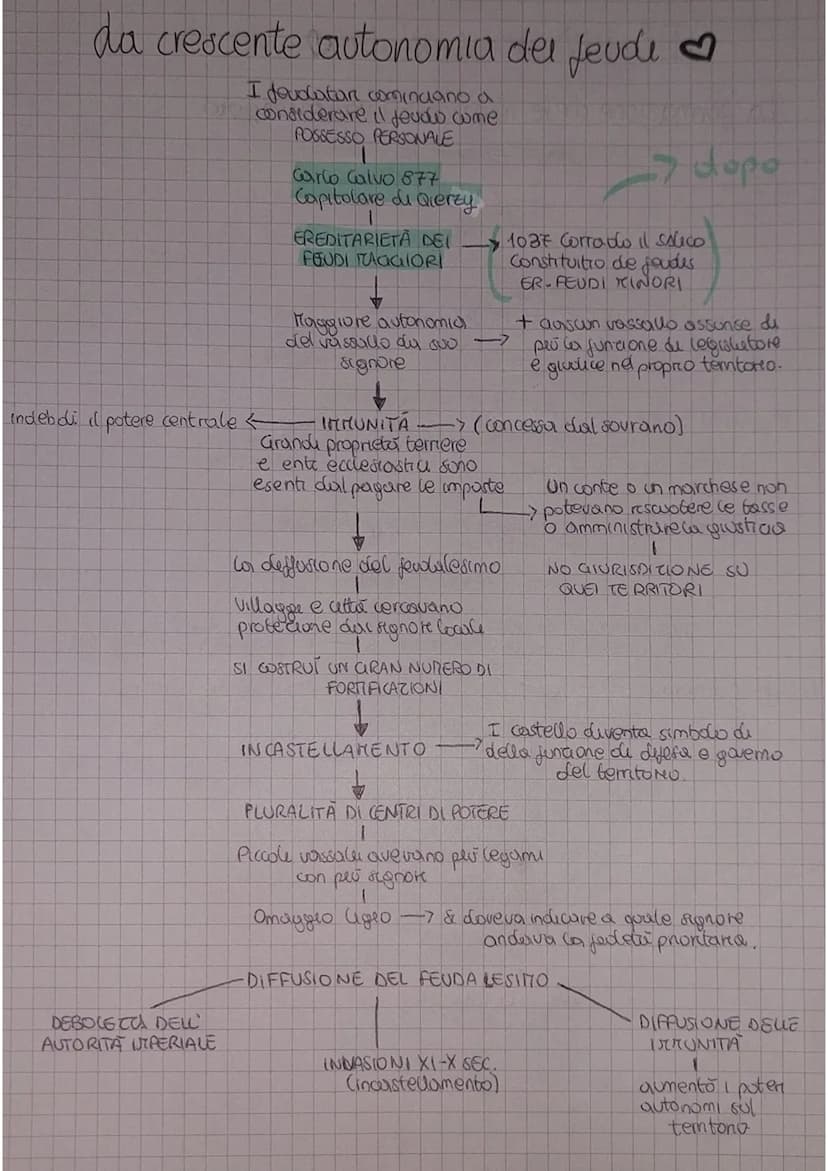 da crescente autonomia dei feudi
I feudatari cominciano a
considerare il feudo come
POSSESSO PERSONALE
dopo
Carlo Calvo 877
Capitolare di Qierzy
EREDITARIETÀ DEI
FEUDI MAGGIORI
1037 Corrado il Salico
Constituitio de feudis
ER. FEUDI MINORI
Maggiore autonomia
del vassallo da suo
signore
+ aascun vassallo assunse di
più la funcione di legislatore
e giudice nel proprio territorio.
indeboli il potere centrale
IMMUNITÀ
(concessa dal sovrano)
Grandi proprietà terriere
e enti ecclesiastici sono
esenti dal pagare le imposte
Un conte o un marchese non
potevano riscuotere le tasse
o amministrare la giustizia
NO GIURISDIZIONE SU
QUEI TERRITORI
La diffusione del feudalesimo
Villaggi e città cercavano
protezione dal signore locale
SI COSTRUÌ UN GRAN NUMERO DI
FORTIFICAZIONI
INCASTELLAMENTO
I castello diventa simbolo di
della funcione di difesa e governo
del territorio.
PLURALITÀ DI CENTRI DI POTERE
Piccoli vassalli avevano più legami
con più signori
Omaggio ligeo
& doveva indicare a quale signore
andava la fedeltà prioritaria.
DIFFUSIONE DEL FEUDALESIMO
DEBOLEZZA DELL'
AUTORITÀ IMPERIALE
INVASIONI XI-X SEC.
(incastellamento)
DIFFUSIONE DELLE
IMMUNITÀ
aumentò i poteri
autonomi sul
territorio